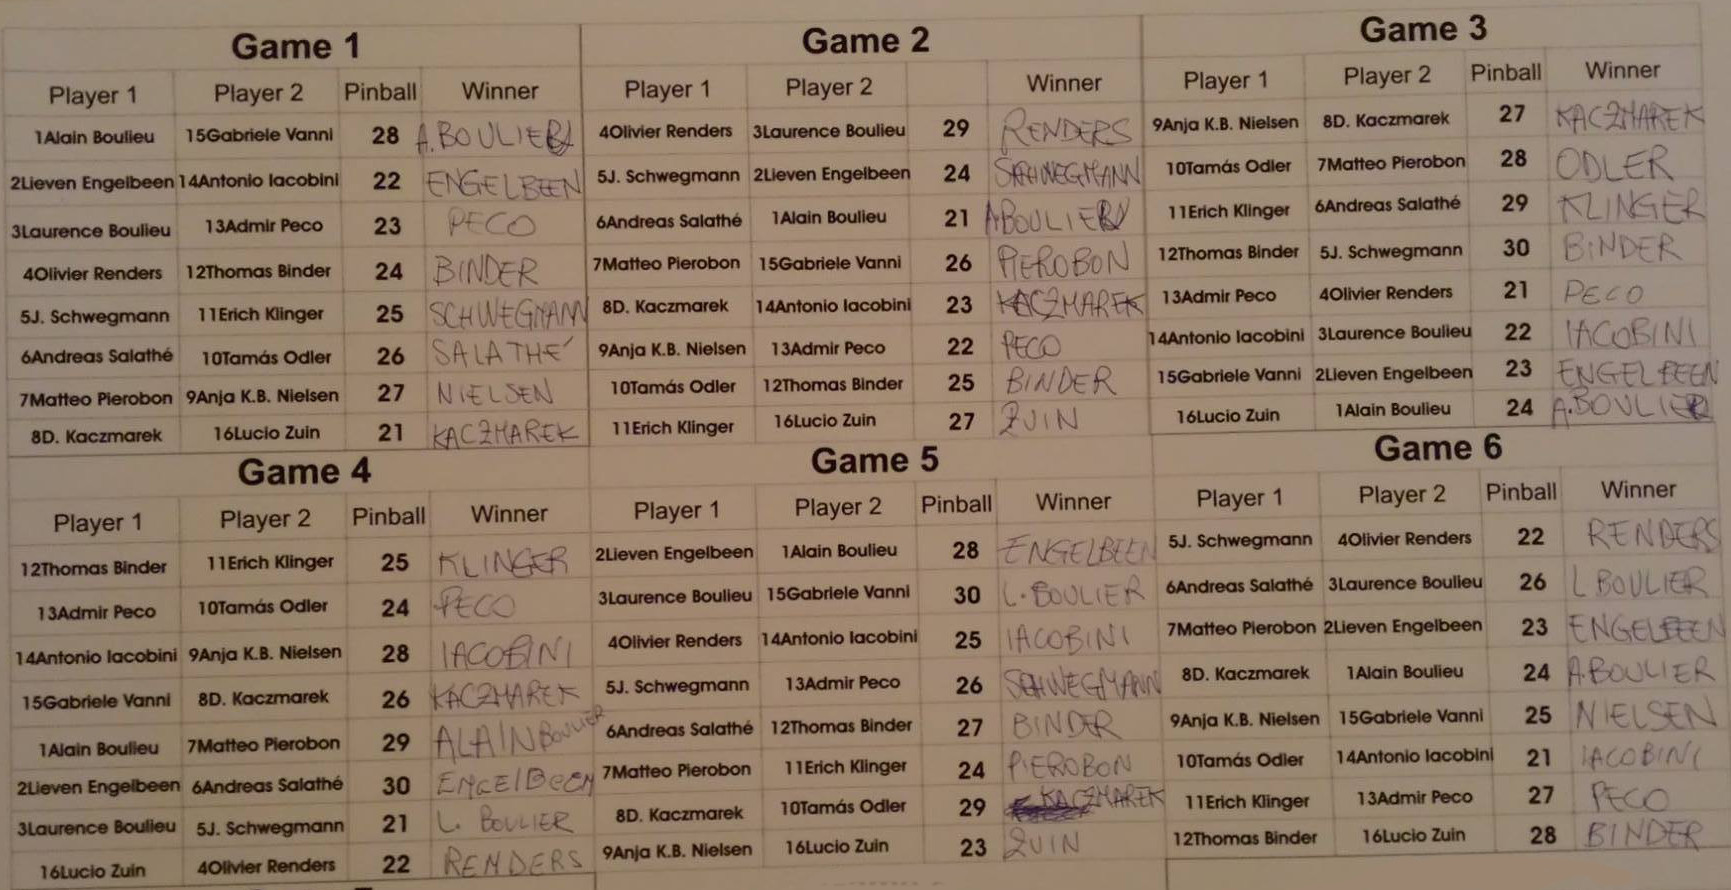 Game 1
Player 1 Player 2 Pinball Winner
1Alain Boulieu 15Gabriele Vanni 28 A.BOULIER
2Lieven Engelbeen 14Antonio Iacobini 22 ENGELBEEN
3Laurence Boulieu 13Admir Peco 23 PECO
4Olivier Renders 12Thomas Binder 24 BINDER
5J. Schwegmann 11Erich Klinger 25 SCHWEGMANN
6Andreas Salathé 10Tamás Odler 26 SALATHÉ
7Matteo Pierobon 9Anja K.B. Nielsen 27 NIELSEN
8D. Kaczmarek 16Lucio Zuin 21 KACZMAREK
Game 2
Player 1 Player 2 Winner
4Olivier Renders 3Laurence Boulieu 29 RENDERS
5J. Schwegmann 2Lieven Engelbeen 24 SCHWEGMANN
6Andreas Salathé 1Alain Boulieu 21 A.BOULIER
7Matteo Pierobon 15Gabriele Vanni 26 PIEROBON
8D. Kaczmarek 14Antonio Iacobini 23 KACZMAREK
9Anja K.B. Nielsen 13Admir Peco 22 PECO
10Tamás Odler 12Thomas Binder 25 BINDER
11Erich Klinger 16Lucio Zuin 27 ZUIN
Game 3
Player 1 Player 2 Pinball Winner
9Anja K.B. Nielsen 8D. Kaczmarek 27 KACZMAREK
10Tamás Odler 7Matteo Pierobon 28 ODLER
11Erich Klinger 6Andreas Salathé 29 KLINGER
12Thomas Binder 5J. Schwegmann 30 BINDER
13Admir Peco 4Olivier Renders 21 PECO
14Antonio Iacobini 3Laurence Boulieu 22 IACOBINI
15Gabriele Vanni 2Lieven Engelbeen 23 ENGELBEEN
16Lucio Zuin 1Alain Boulieu 24 A.BOULIER
Game 4
Player 1 Player 2 Pinball Winner
12Thomas Binder 11Erich Klinger 25 KLINGER
13Admir Peco 10Tamás Odler 24 PECO
14Antonio Iacobini 9Anja K.B. Nielsen 28 IACOBINI
15Gabriele Vanni 8D. Kaczmarek 26 KACZMAREK
1Alain Boulieu 7Matteo Pierobon 29 ALAIN BOULIER
2Lieven Engelbeen 6Andreas Salathé 30 ENGElBEEN
3Laurence Boulieu 5J. Schwegmann 21 L. BOULIER
16Lucio Zuin 4Olivier Renders 22 RENDERS
Game 5
Player 1 Player 2 Pinball Winner
2Lieven Engelbeen 1Alain Boulieu 28 ENGELBEEN
3Laurence Boulieu 15Gabriele Vanni 30 L.BOULIER
4Olivier Renders 14Antonio Iacobini 25 IACOBINI
5J. Schwegmann 13Admir Peco 26 SCHWEGMANN
6Andreas Salathé 12Thomas Binder 27 BINDER
7Matteo Pierobon 11Erich Klinger 24 PIEROBON
8D. Kaczmarek 10Tamás Odler 29 KACZMAREK
9Anja K.B. Nielsen 16Lucio Zuin 23 ZUIN
Game 6
Player 1 Player 2 Pinball Winner
5J. Schwegmann 4Olivier Renders 22 RENDERS
6Andreas Salathé 3Laurence Boulieu 26 L BOULIER
7Matteo Pierobon 2Lieven Engelbeen 23 ENGELBEEN
8D. Kaczmarek 1Alain Boulieu 24 A.BOULIER
9Anja K.B. Nielsen 15Gabriele Vanni 25 NIELSEN
10Tamás Odler 14Antonio Iacobini 21 IACOBINI
11Erich Klinger 13Admir Peco 27 PECO
12Thomas Binder 16Lucio Zuin 28 BINDER